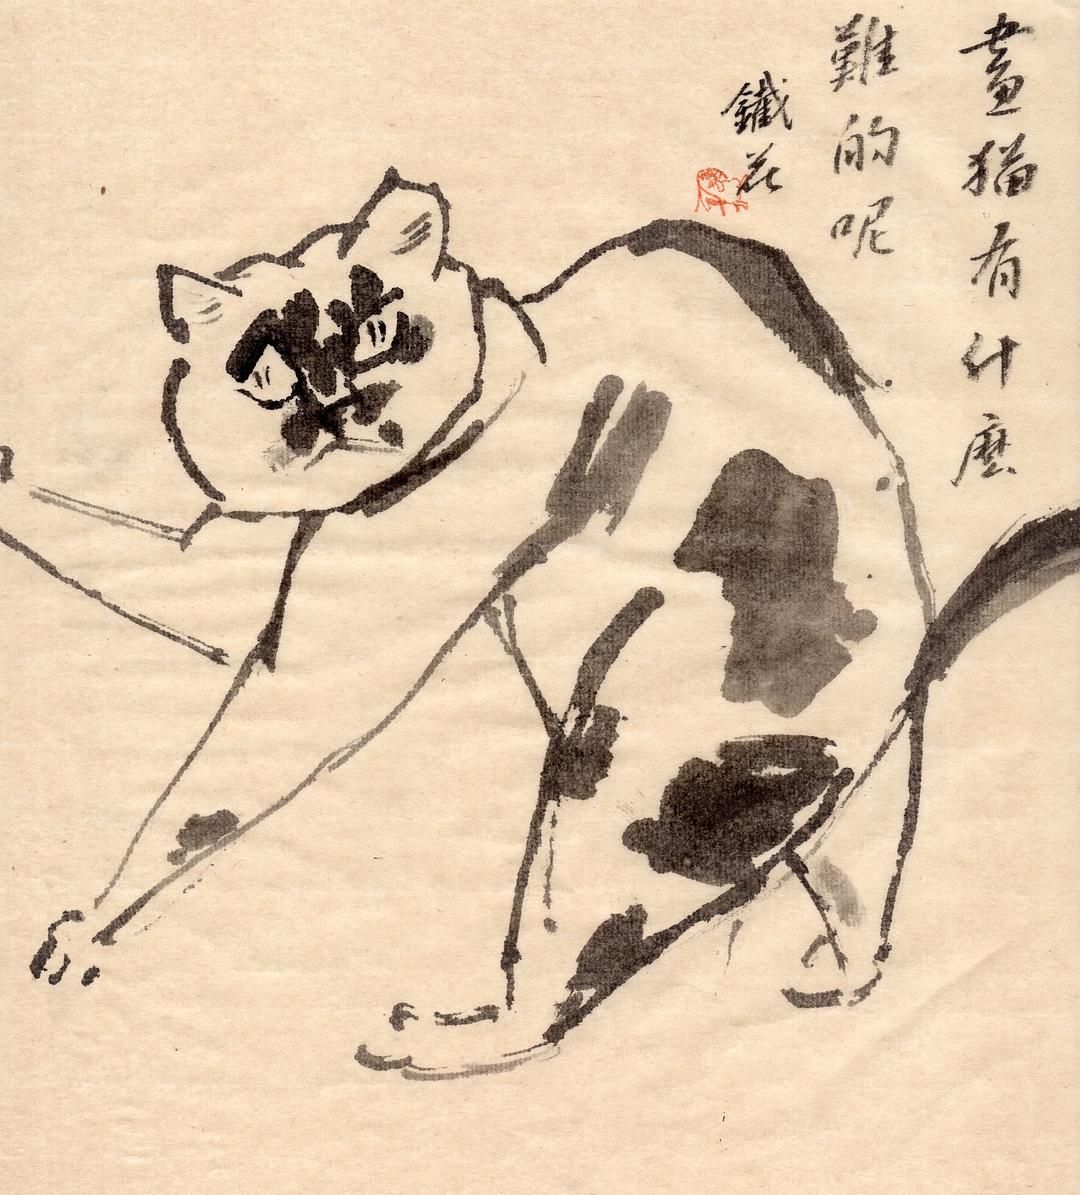 畫猫有什麼
難的呢
鐵花